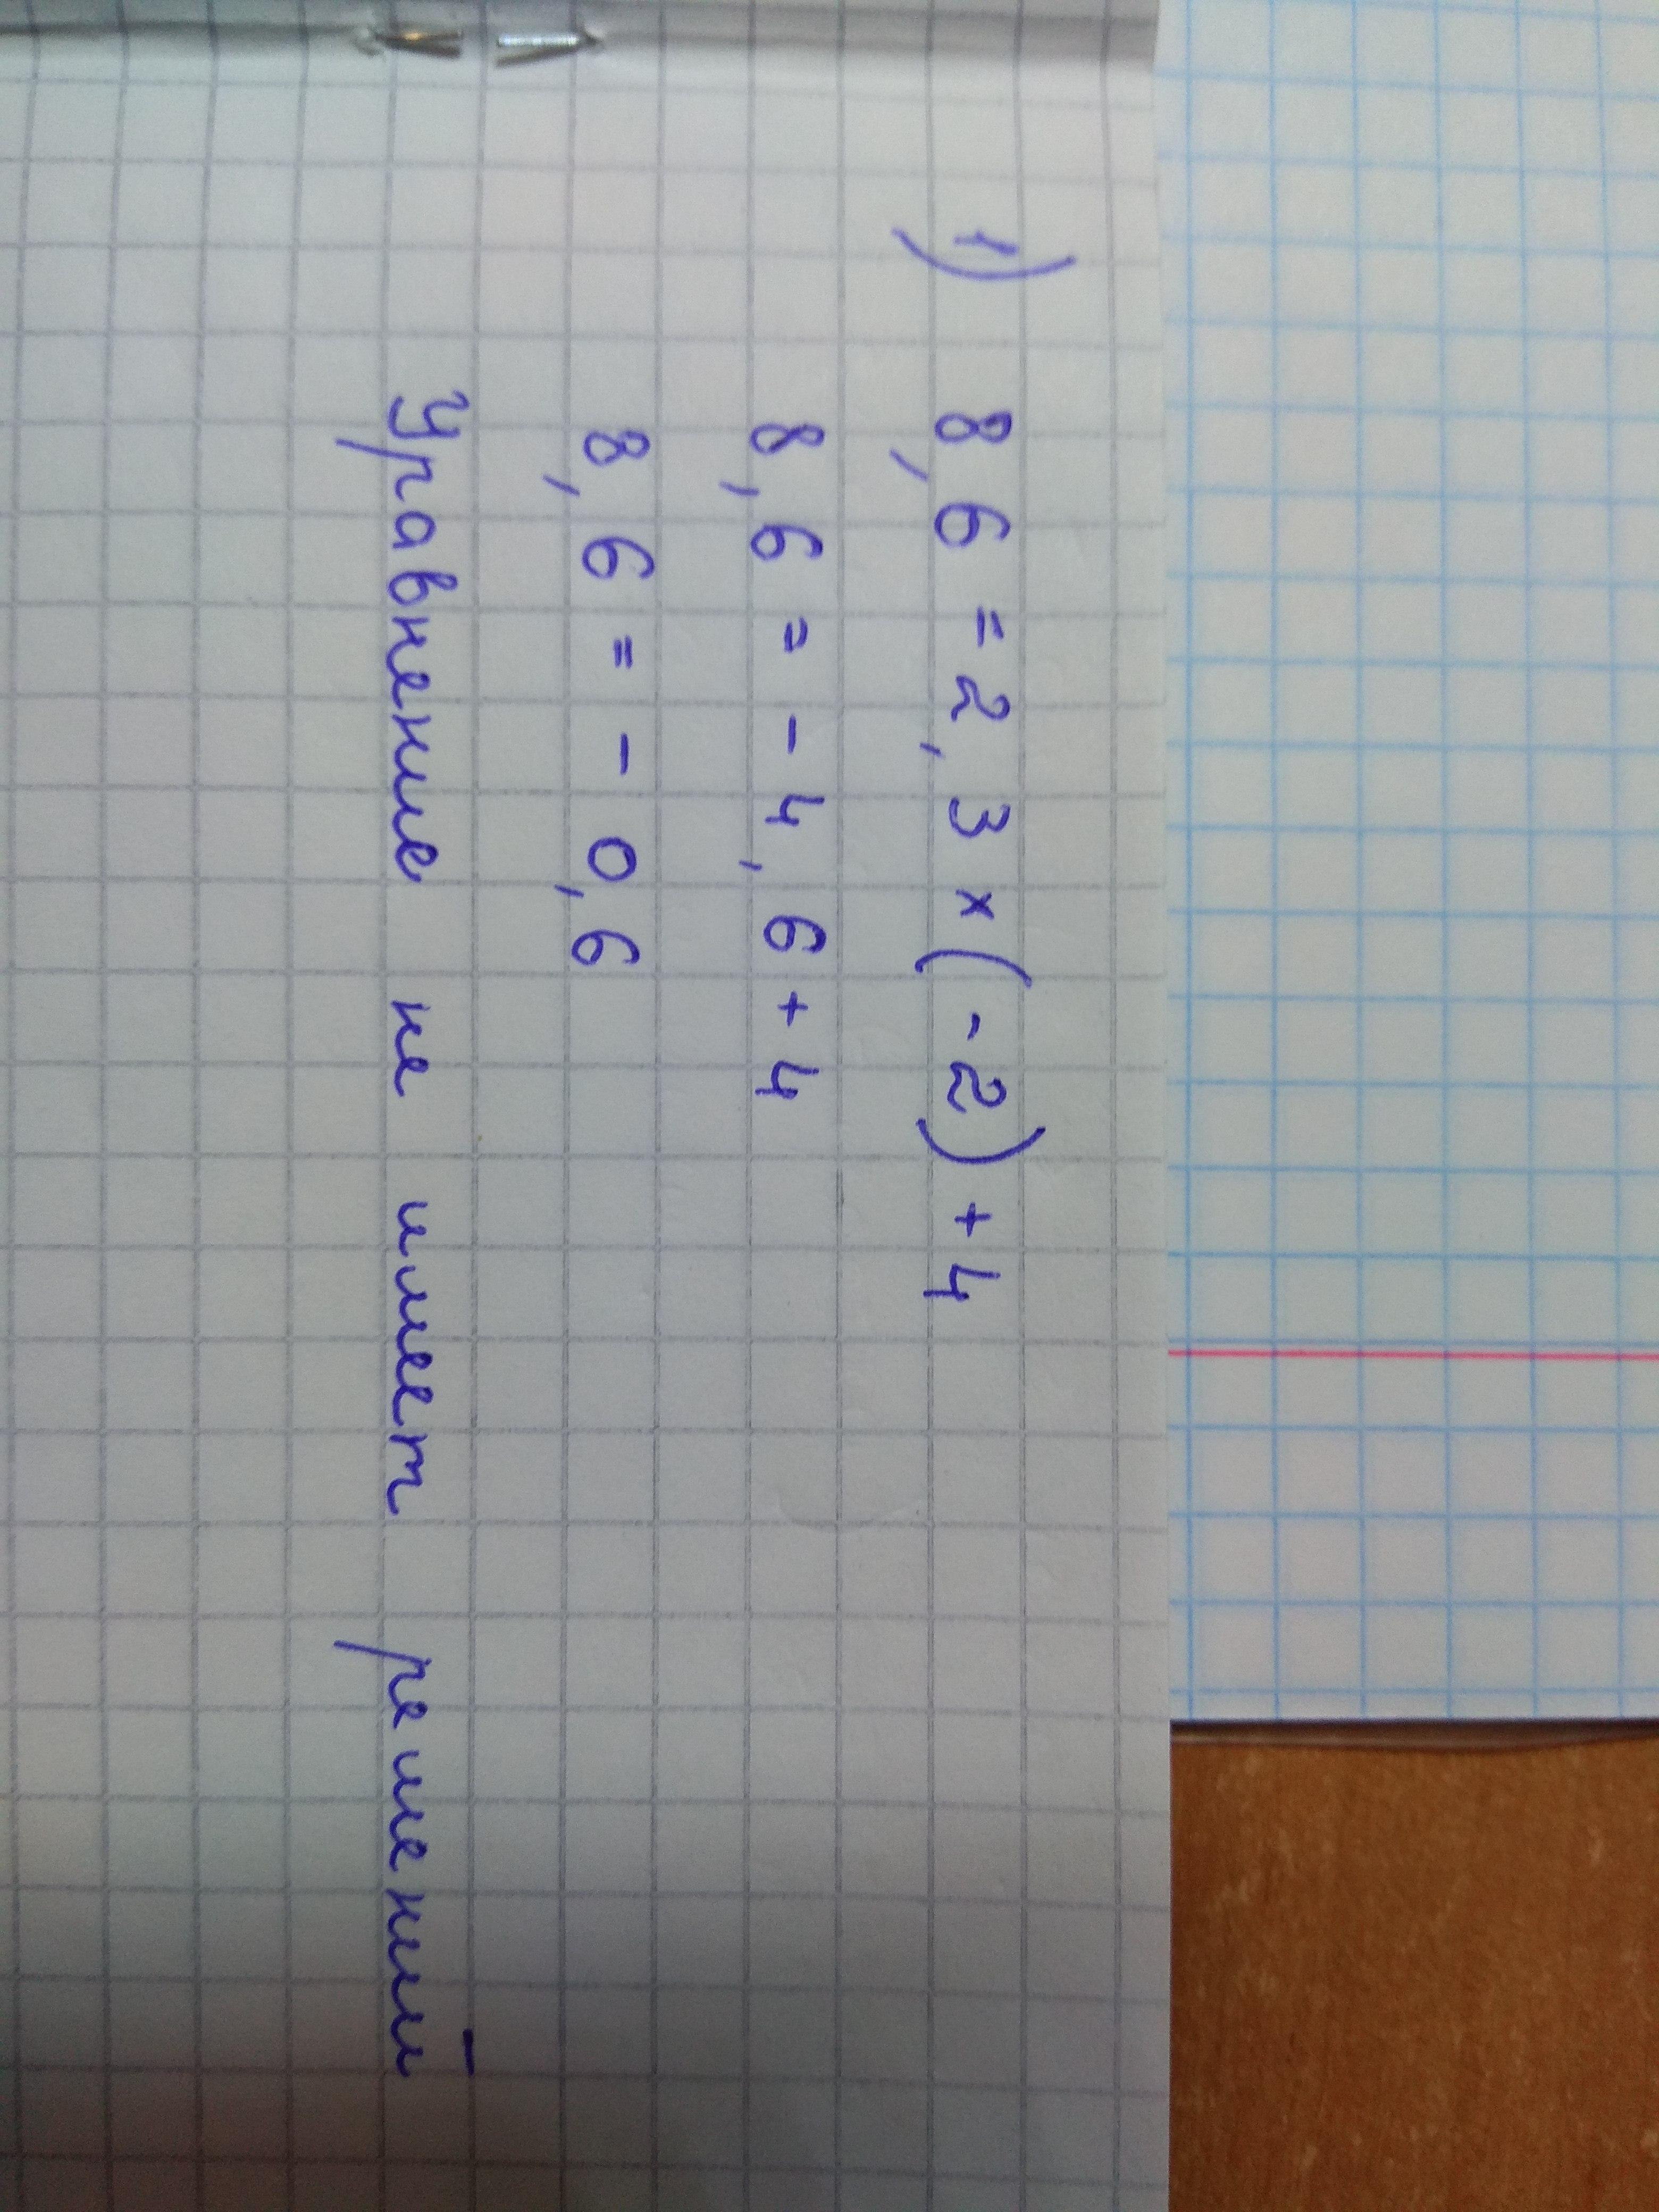 1) 8,6 = 2,3 × (-2) + 4
8,6 = - 4,6 + 4
8,6 = - 0,6
Уравнение не имеет решений